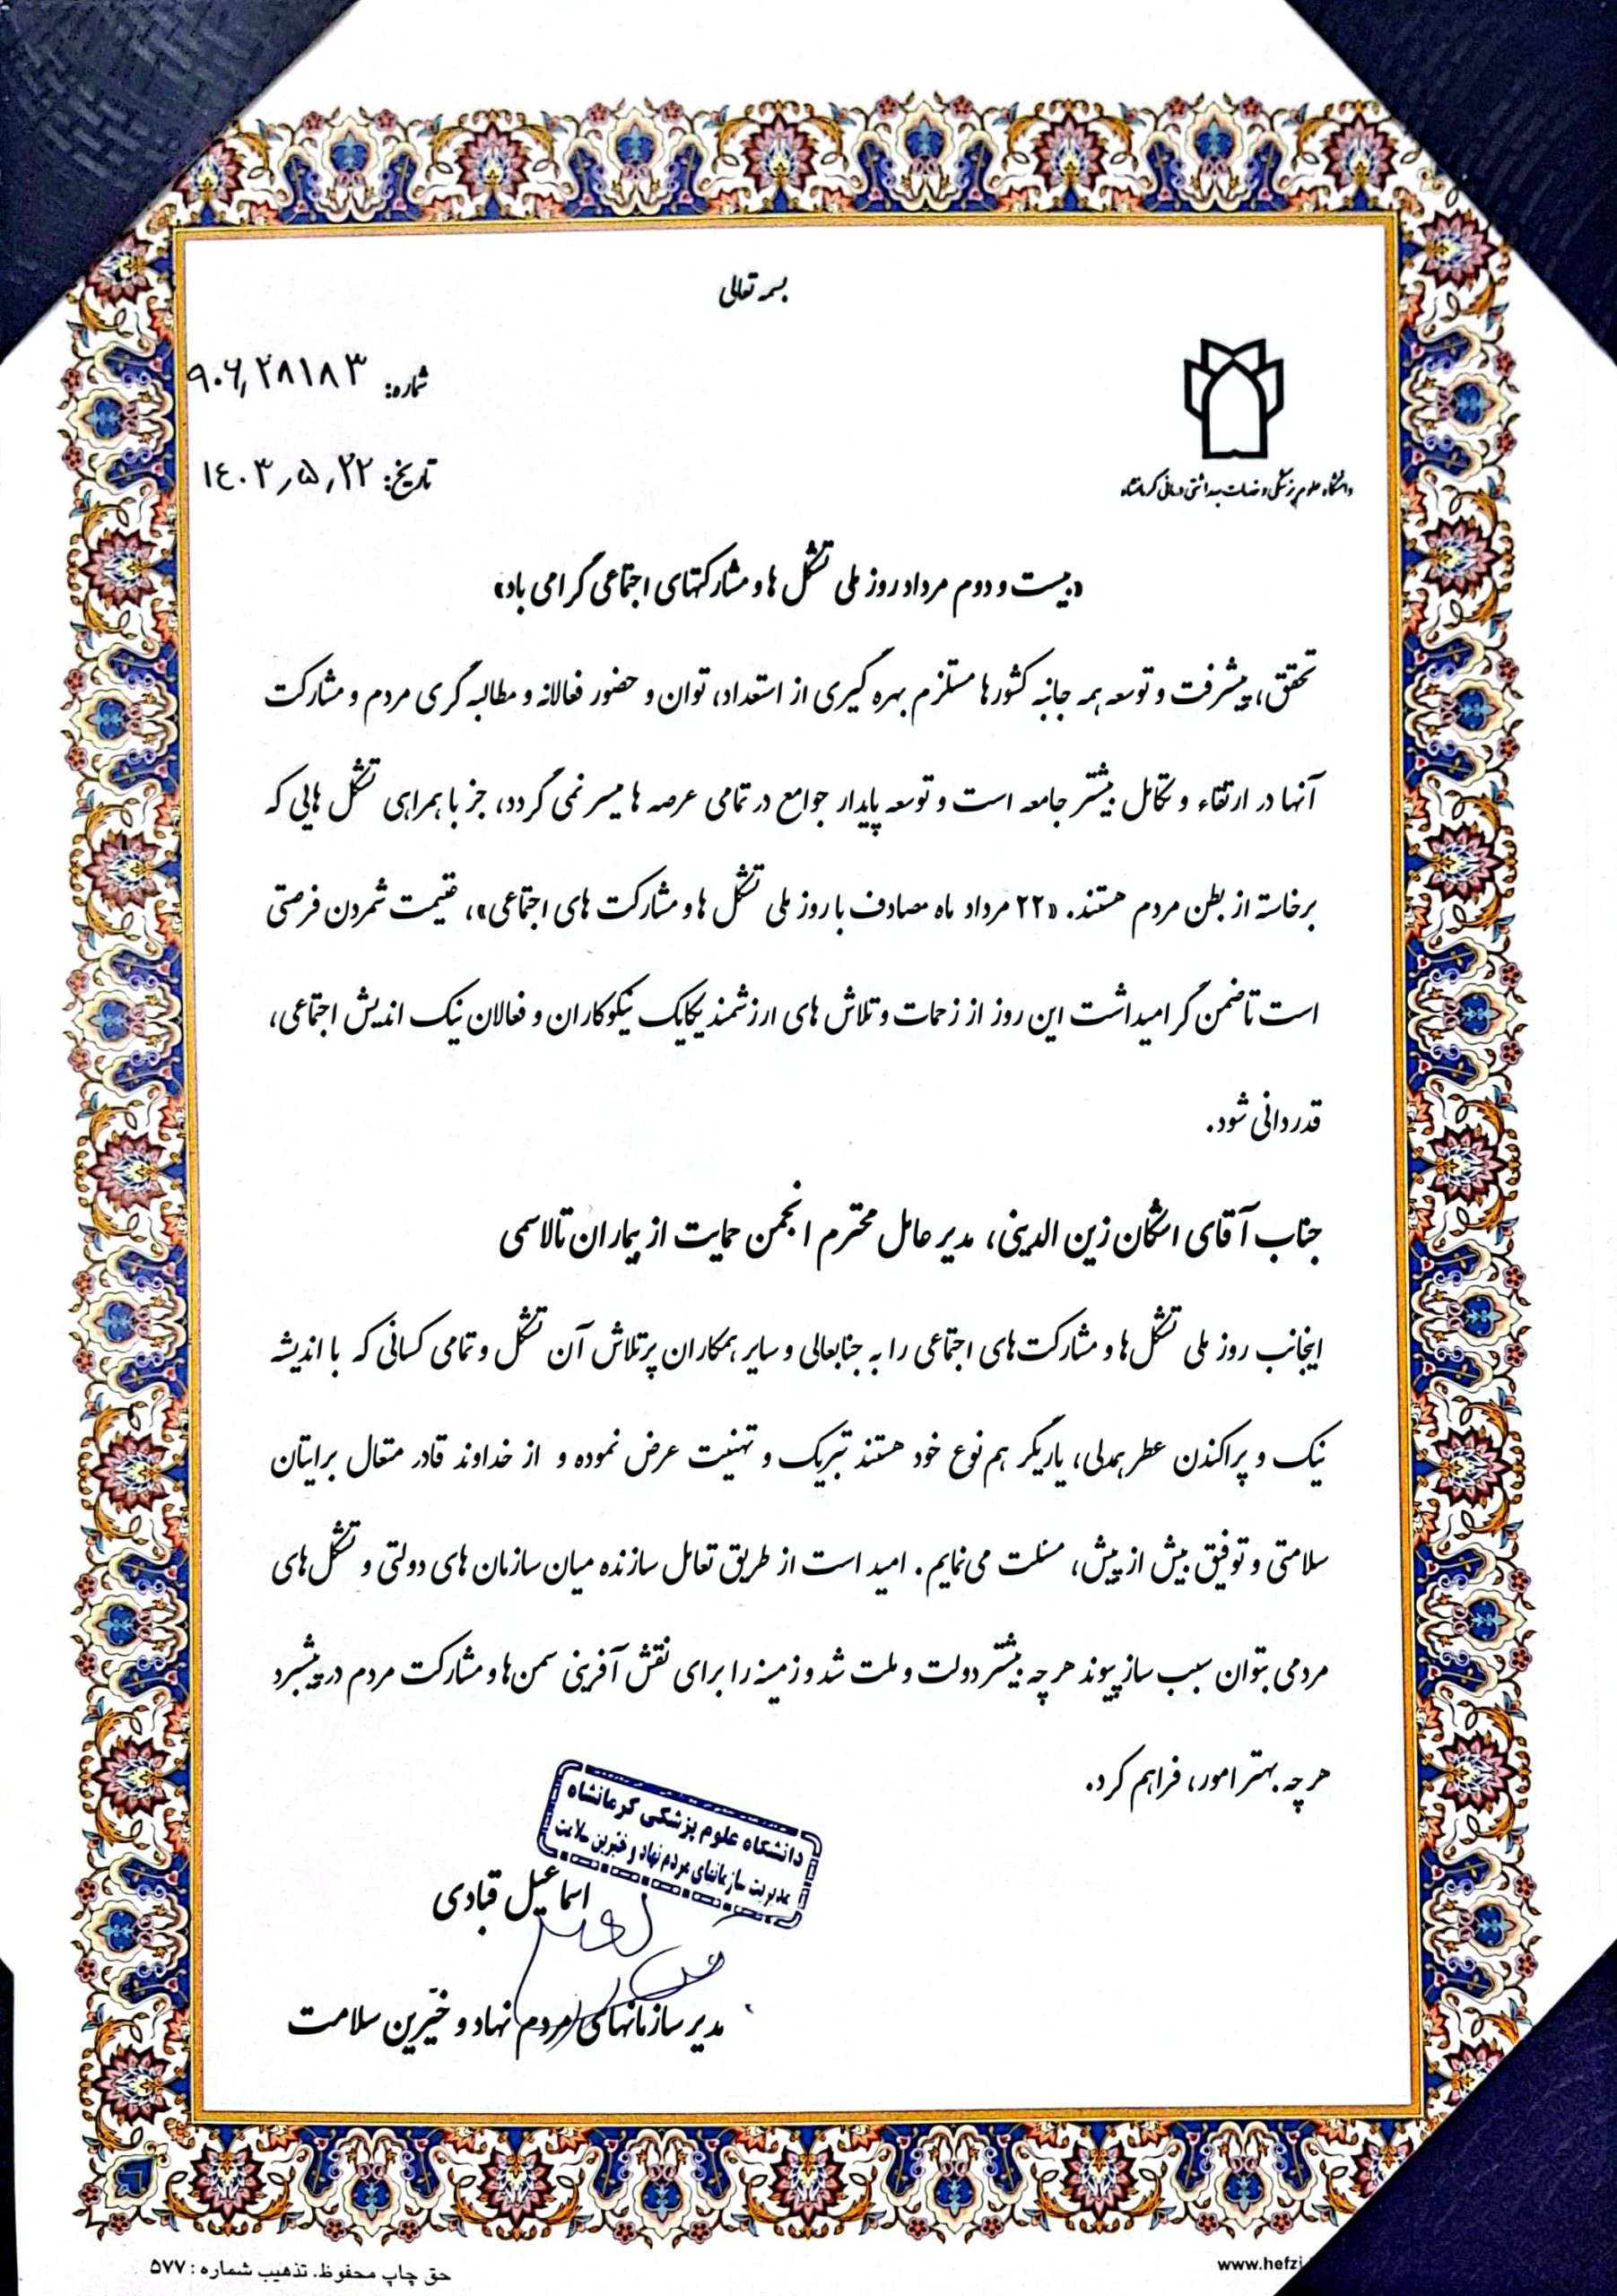 بسمه تعالی
دانشگاه علوم پزشکی و خدمات بهداشتی درمانی کرمانشاه
شماره: ۹۰۶٫۲۸۱۸۳
تاریخ: ۱۴۰۳٫۵٫۲۲
«بیست و دوم مرداد روز ملی تشکل ها و مشارکتهای اجتماعی گرامی باد»
تحقق، پیشرفت و توسعه همه جانبه کشورها مستلزم بهره گیری از استعداد، توان و حضور فعالانه و مطالبه گری مردم و مشارکت
آنها در ارتقاء و تکامل بیشتر جامعه است و توسعه پایدار جوامع در تمامی عرصه ها میسر نمی گردد، جز با همراهی تشکل هایی که
برخاسته از بطن مردم هستند. «۲۲ مرداد ماه مصادف با روز ملی تشکل ها و مشارکت های اجتماعی»، غنیمت شمردن فرصتی
است تا ضمن گرامیداشت این روز از زحمات و تلاش های ارزشمند یکایک نیکوکاران و فعالان نیک اندیش اجتماعی،
قدردانی شود.
جناب آقای اشکان زین الدینی، مدیر عامل محترم انجمن حمایت از بیماران تالاسمی
اینجانب روز ملی تشکل‌ها و مشارکت‌های اجتماعی را به جنابعالی و سایر همکاران پرتلاش آن تشکل و تمامی کسانی که با اندیشه
نیک و پراکندن عطر همدلی، یاریگر هم نوع خود هستند تبریک و تهنیت عرض نموده و از خداوند قادر متعال برایتان
سلامتی و توفیق بیش از پیش، مسئلت می‌نمایم. امید است از طریق تعامل سازنده میان سازمان های دولتی و تشکل‌های
مردمی بتوان سبب ساز پیوند هر چه بیشتر دولت و ملت شد و زمینه را برای نقش آفرینی سمن‌ها و مشارکت مردم در پیشبرد
هر چه بهتر امور، فراهم کرد.
دانشگاه علوم پزشکی کرمانشاه
مدیریت سازمانهای مردم نهاد و خیرین سلامت
اسماعیل قبادی
مدیر سازمانهای مردم نهاد و خیّرین سلامت
حق چاپ محفوظ. تذهیب شماره : ۵۷۷
www.hefzi